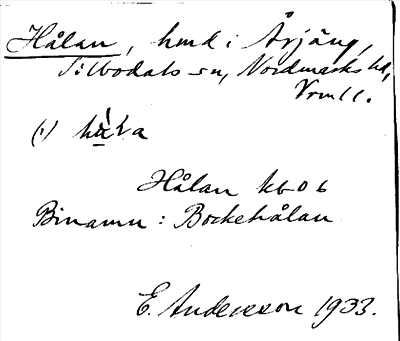 Hålan, hmd i Årjäng,
Silbodals sn, Nordmarks hd,
Vrml.
(i) hå̀la
Hålan kbo b
Binamn : Bockehålan
E. Andersson 1933.